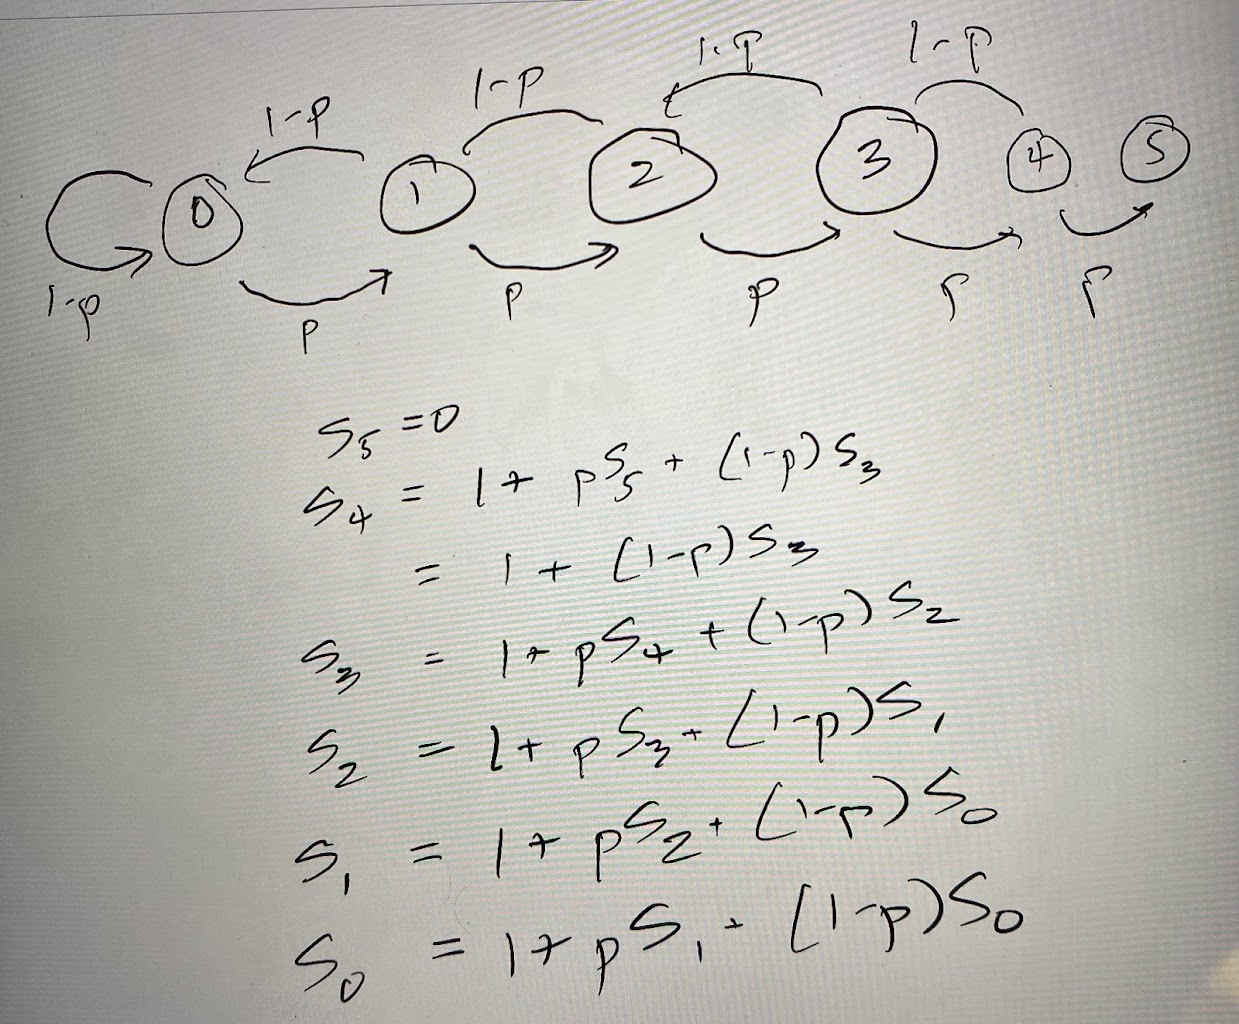 1-p 1-p 1-p 1-p
0 1 2 3 4 5
1-p p p p p p
S₅ = 0
S₄ = 1 + pS₅ + (1-p)S₃
= 1 + (1-p)S₃
S₃ = 1 + pS₄ + (1-p)S₂
S₂ = 1 + pS₃ + (1-p)S₁
S₁ = 1 + pS₂ + (1-p)S₀
S₀ = 1 + pS₁ + (1-p)S₀